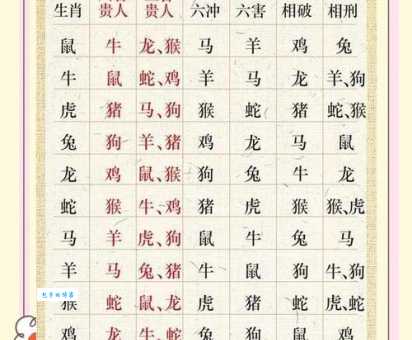 生肖 贵人 贵人 六冲 六害 相破 相刑
鼠 牛 龙、猴 马 羊 鸡 兔
牛 鼠 蛇、鸡 羊 马 龙 羊、狗
虎 猪 马、狗 猴 蛇 猪 蛇、猴
兔 狗 羊、猪 鸡 龙 马 鼠
龙 鸡 鼠、猴 狗 兔 牛 龙
蛇 猴 牛、鸡 猪 虎 猴 猴、虎
马 羊 虎、狗 鼠 牛 兔 马
羊 马 兔、猪 牛 鼠 狗 狗、牛
猴 蛇 鼠、龙 虎 猪 蛇 虎、蛇
鸡 龙 牛、蛇 兔 狗 鼠 鸡